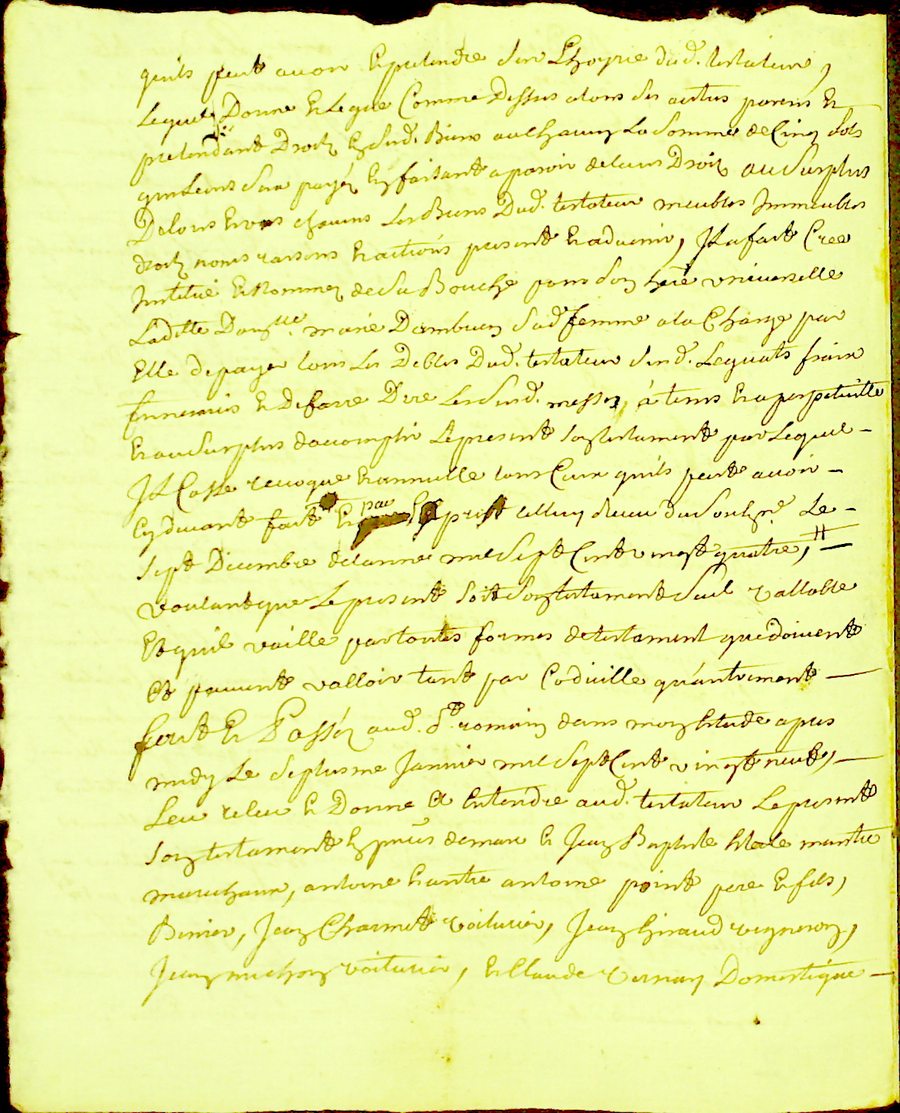 quils peut avoir Et pretendre sur L'hoyrie dud. testateur,
Lequel Donne Et Legue Comme Dessus a tous ses autres parens Et
pretendant Droit En sesd. Biens a un Chacun La Somme de Cinq Sols
qui Leurs Sera payés En faisant aparoir de Leurs Droit, au Surplus
De tous Et uns chacuns Les Biens Dud. testateur meubles Immeubles
droits noms raisons Et actions present Et advenir, Il a fait Cree
Institué Et Nommez de Sa Bouche pour Son here universelle
Laditte Dauzlle marie Dambuen Sad. femme a la Charge par
Elle de payer tous Les Debtes Dud. testateur Sesd. Legats frais
funeraires Et De faire Dire Lessusd. messes, à tems Et a perpetuitte
Et au Surplus daccomplir Le present Son testament par Lequel –
Il Casse revoque Et annulle tous Ceux quils peut avoir –
Cy devant fait Et par Exprest Celluy Receu du Soubsné Le –
Sept Decembre de Lannee mil Sept Cent vingt quatre, –
voulant que Le present Soit Son testament Seul vallable
Et quil vaille par toutes formes de testament que doivent
Et peuvent valloir tant par Codicille qu'autrement –
fait Et Passéz aud. St romain dans mon Etude apres
midy Le Septiesme Janvier mil Sept Cent vingt neuf, –
Leu releu Et Donne Et Entendre aud. testateur Le present
Son testament En pnces de marc Et Jean Baptiste maitre
marechaux, antoine Et autre antoine point pere Et fils,
Jean Charmet voiturier, Jean Giraud vigneron,
Jean michon voiturier, Et Claude vernay Domestique –